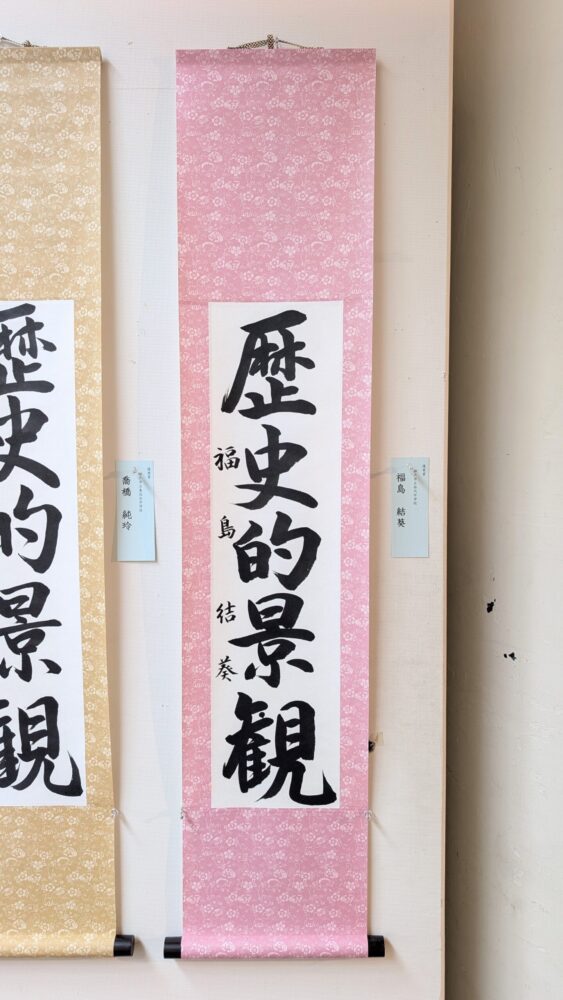 歴史的景観
福島結葵
福島 結葵
歴史的景観
喬橋 純玲